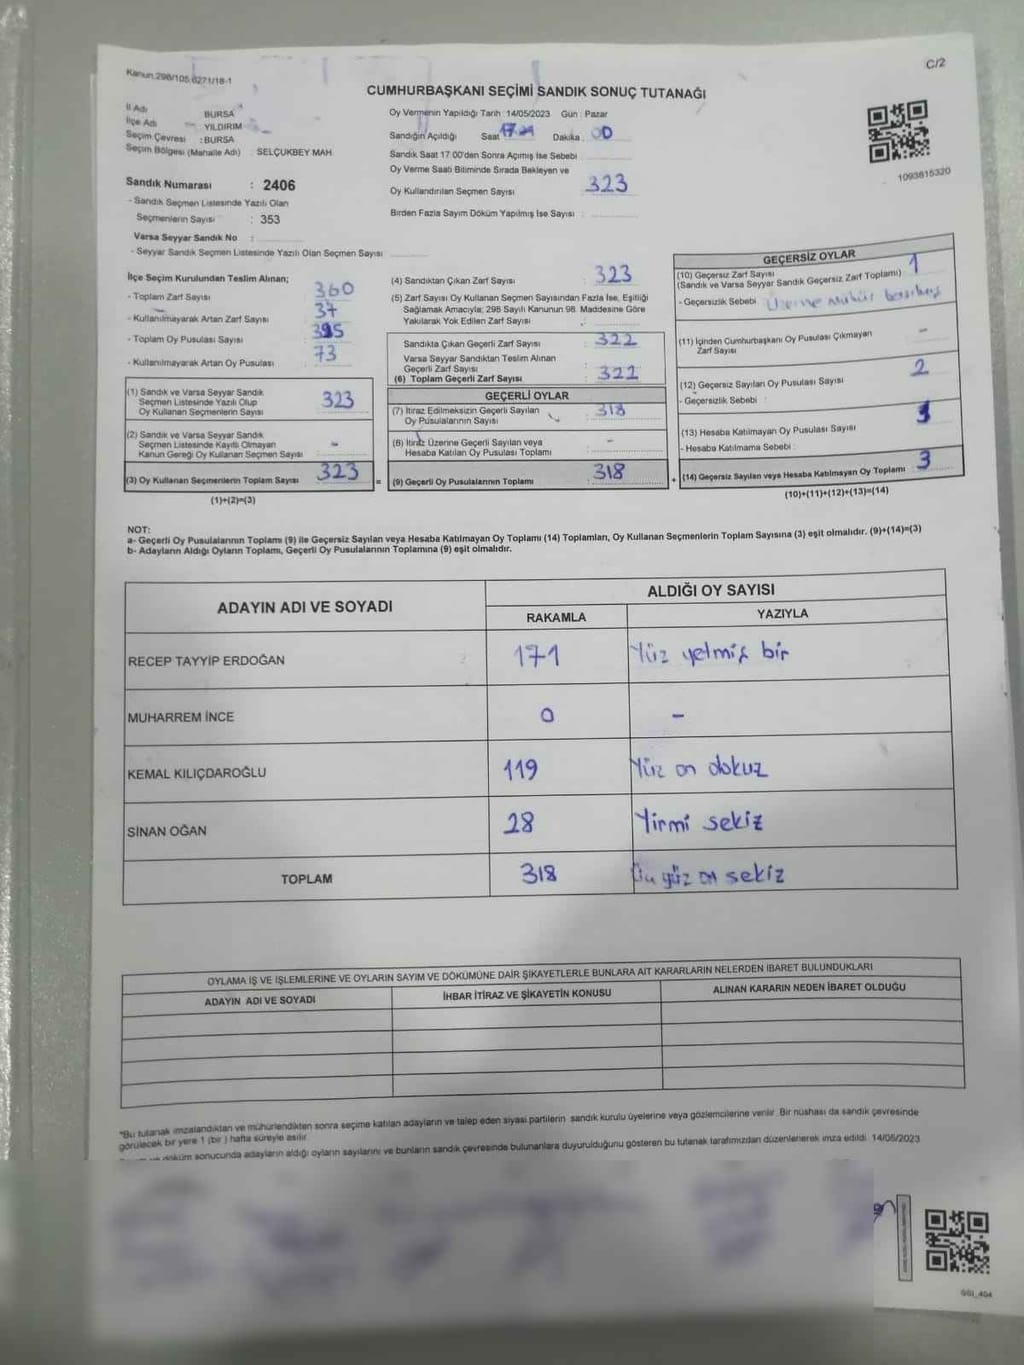 Kanun:298/105,6271/18-1
C/2
CUMHURBAŞKANI SEÇİMİ SANDIK SONUÇ TUTANAĞI
İl Adı BURSA
İlçe Adı YILDIRIM
Seçim Çevresi : BURSA
Seçim Bölgesi (Mahalle Adı) : SELÇUKBEY MAH.
Sandık Numarası : 2406
- Sandık Seçmen Listesinde Yazılı Olan
Seçmenlerin Sayısı : 353
Varsa Seyyar Sandık No :
- Seyyar Sandık Seçmen Listesinde Yazılı Olan Seçmen Sayısı
Oy Vermenin Yapıldığı Tarih :14/05/2023 Gün : Pazar
Sandığın Açıldığı Saat Dakika :
Sandık Saat 17:00'den Sonra Açılmış İse Sebebi
Oy Verme Saati Bitiminde Sırada Bekleyen ve
Oy Kullandırılan Seçmen Sayısı 323
Birden Fazla Sayım Döküm Yapılmış İse Sayısı :
1093815320
İlçe Seçim Kurulundan Teslim Alınan;
- Toplam Zarf Sayısı 360
- Kullanılmayarak Artan Zarf Sayısı 37
- Toplam Oy Pusulası Sayısı 395
- Kullanılmayarak Artan Oy Pusulası 73
(1) Sandık ve Varsa Seyyar Sandık
Seçmen Listesinde Yazılı Olup
Oy Kullanan Seçmenlerin Sayısı 323
(2) Sandık ve Varsa Seyyar Sandık
Seçmen Listesinde Kayıtlı Olmayan
Kanun Gereği Oy Kullanan Seçmen Sayısı -
(3) Oy Kullanan Seçmenlerin Toplam Sayısı 323
(1)+(2)=(3)
(4) Sandıktan Çıkan Zarf Sayısı : 323
(5) Zarf Sayısı Oy Kullanan Seçmen Sayısından Fazla İse, Eşitliği
Sağlamak Amacıyla; 298 Sayılı Kanunun 98. Maddesine Göre
Yakılarak Yok Edilen Zarf Sayısı :
Sandıkta Çıkan Geçerli Zarf Sayısı : 322
Varsa Seyyar Sandıktan Teslim Alınan
Geçerli Zarf Sayısı
(6) Toplam Geçerli Zarf Sayısı : 322
GEÇERLİ OYLAR
(7) İtiraz Edilmeksizin Geçerli Sayılan
Oy Pusulalarının Sayısı : 318
(8) İtiraz Üzerine Geçerli Sayılan veya
Hesaba Katılan Oy Pusulası Toplamı -
= (9) Geçerli Oy Pusulalarının Toplamı 318
GEÇERSİZ OYLAR
(10) Geçersiz Zarf Sayısı 1
(Sandık ve Varsa Seyyar Sandık Geçersiz Zarf Toplamı)
- Geçersizlik Sebebi : Üzerine mühür
(11) İçinden Cumhurbaşkanı Oy Pusulası Çıkmayan
Zarf Sayısı -
(12) Geçersiz Sayılan Oy Pusulası Sayısı 2
- Geçersizlik Sebebi :
(13) Hesaba Katılmayan Oy Pusulası Sayısı
- Hesaba Katılmama Sebebi :
+ (14) Geçersiz Sayılan veya Hesaba Katılmayan Oy Toplamı : 3
(10)+(11)+(12)+(13)=(14)
NOT:
a- Geçerli Oy Pusulalarının Toplamı (9) ile Geçersiz Sayılan veya Hesaba Katılmayan Oy Toplamı (14) Toplamları, Oy Kullanan Seçmenlerin Toplam Sayısına (3) eşit olmalıdır. (9)+(14)=(3)
b- Adayların Aldığı Oyların Toplamı, Geçerli Oy Pusulalarının Toplamına (9) eşit olmalıdır.
ADAYIN ADI VE SOYADI
ALDIĞI OY SAYISI
RAKAMLA YAZIYLA
RECEP TAYYİP ERDOĞAN 171 Yüz yetmiş bir
MUHARREM İNCE 0 -
KEMAL KILIÇDAROĞLU 119 Yüz on dokuz
SİNAN OĞAN 28 Yirmi sekiz
TOPLAM 318 yüz on sekiz
OYLAMA İŞ VE İŞLEMLERİNE VE OYLARIN SAYIM VE DÖKÜMÜNE DAİR ŞİKAYETLERLE BUNLARA AİT KARARLARIN NELERDEN İBARET BULUNDUKLARI
ADAYIN ADI VE SOYADI İHBAR İTİRAZ VE ŞİKAYETİN KONUSU ALINAN KARARIN NEDEN İBARET OLDUĞU
*Bu tutanak imzalandıktan ve mühürlendikten sonra seçime katılan adayların ve talep eden siyasi partilerin sandık kurulu üyelerine veya gözlemcilerine verilir. Bir nüshası da sandık çevresinde
görülecek bir yere 1 (bir ) hafta süreyle asılır.
döküm sonucunda adayların aldığı oyların sayılarını ve bunların sandık çevresinde bulunanlara duyurulduğunu gösteren bu tutanak tarafımızdan düzenlenerek imza edildi. 14/05/2023